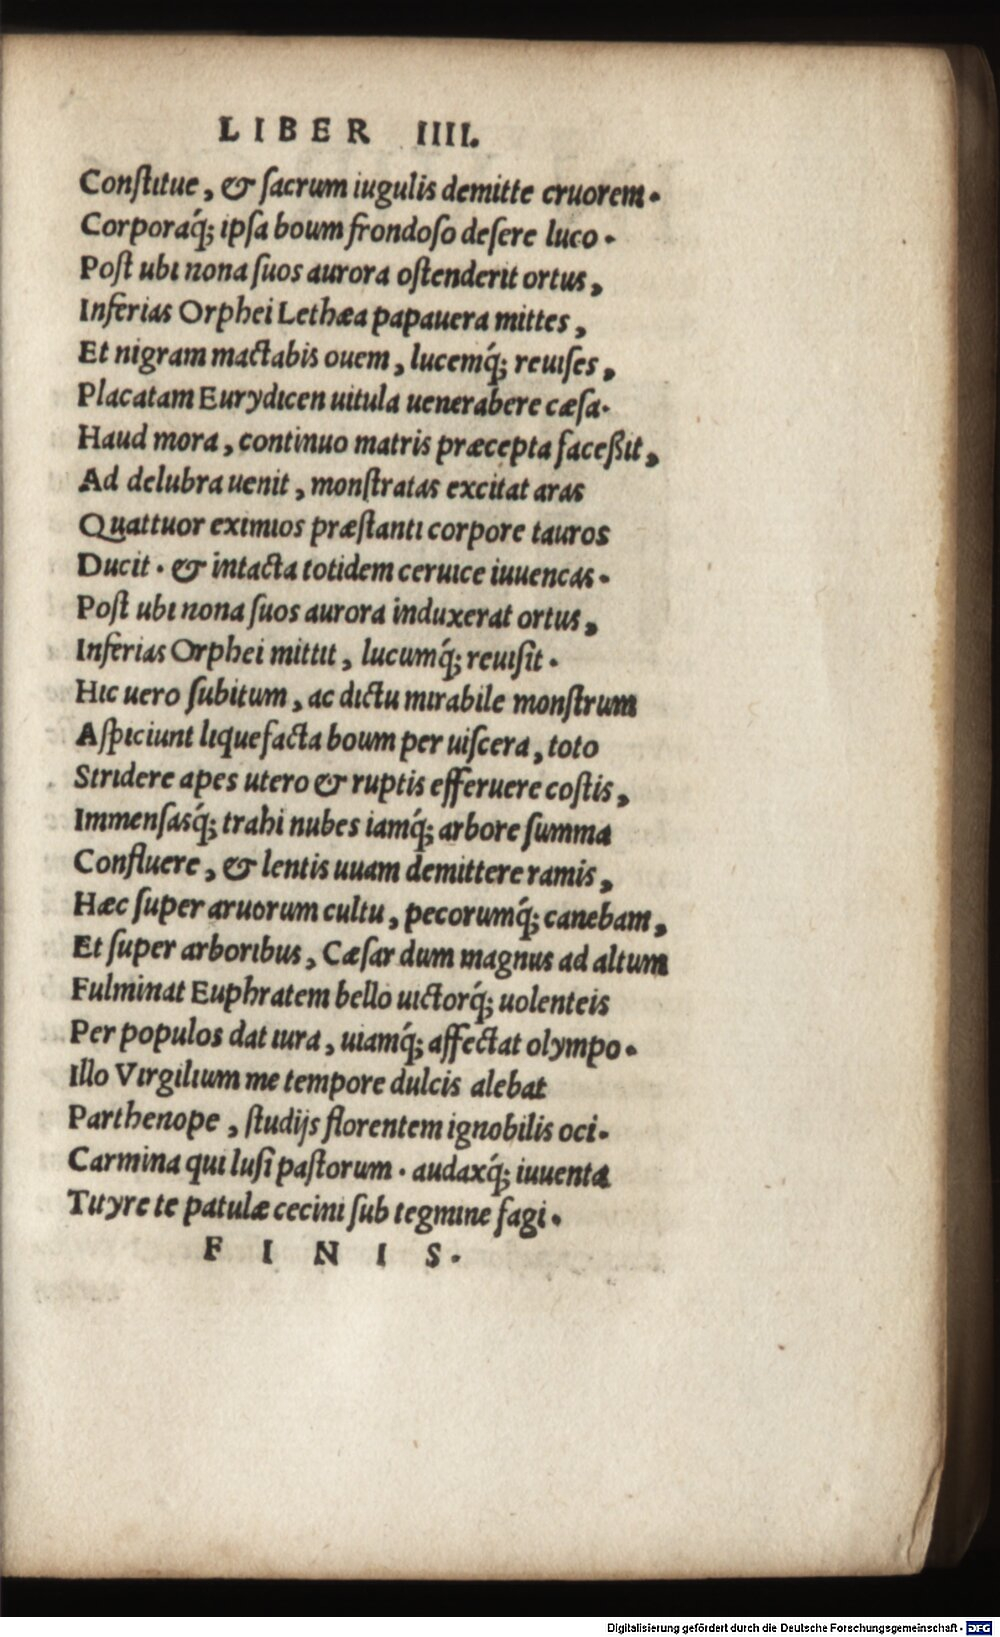 LIBER IIII.
Conſtitue, & ſacrum iugulis demitte cruorem.
Corporaq́; ipſa boum frondoſo deſere luco.
Poſt ubi nona ſuos aurora oſtenderit ortus,
Inferias Orphei Lethæa papauera mittes,
Et nigram mactabis ouem, lucemq́; reuiſes,
Placatam Eurydicen uitula uenerabere cæſa.
Haud mora, continuo matris præcepta faceßit,
Ad delubra uenit, monſtratas excitat aras
Quattuor eximios præſtanti corpore tauros
Ducit. & intacta totidem ceruice iuuencas.
Poſt ubi nona ſuos aurora induxerat ortus,
Inferias Orphei mittit, lucumq́; reuiſit.
Hic uero ſubitum, ac dictu mirabile monſtrum
Aſpiciunt liquefacta boum per uiſcera, toto
Stridere apes utero & ruptis efferuere coſtis,
Immenſasq́; trahi nubes iamq́; arbore ſumma
Confluere, & lentis uuam demittere ramis,
Hæc ſuper aruorum cultu, pecorumq́; canebam,
Et ſuper arboribus, Cæſar dum magnus ad altum
Fulminat Euphratem bello uictorq́; uolenteis
Per populos dat iura, uiamq́; affectat olympo.
Illo Virgilium me tempore dulcis alebat
Parthenope, ſtudijs florentem ignobilis oci.
Carmina qui luſi paſtorum. audaxq́; iuuenta
Tityre te patulæ cecini ſub tegmine fagi.
FINIS.
Digitalisierung gefördert durch die Deutsche Forschungsgemeinschaft - DFG